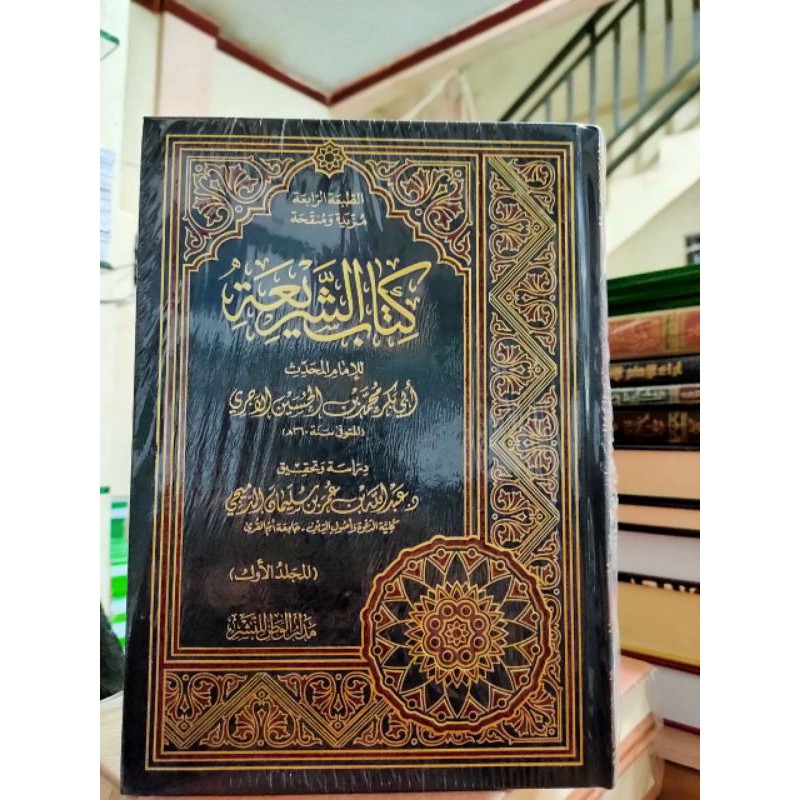 الطبعة الرابعة
مزيدة ومنقحة
كتاب الشريعة
للإمام المحدث
أبي بكر محمد بن الحسين الآجري
(المتوفى سنة ٣٦٠هـ)
دراسة وتحقيق
د. عبد الله بن عمر بن سليمان الدميجي
كلية الدعوة وأصول الدين - جامعة أم القرى
(المجلد الأول)
مدار الوطن للنشر